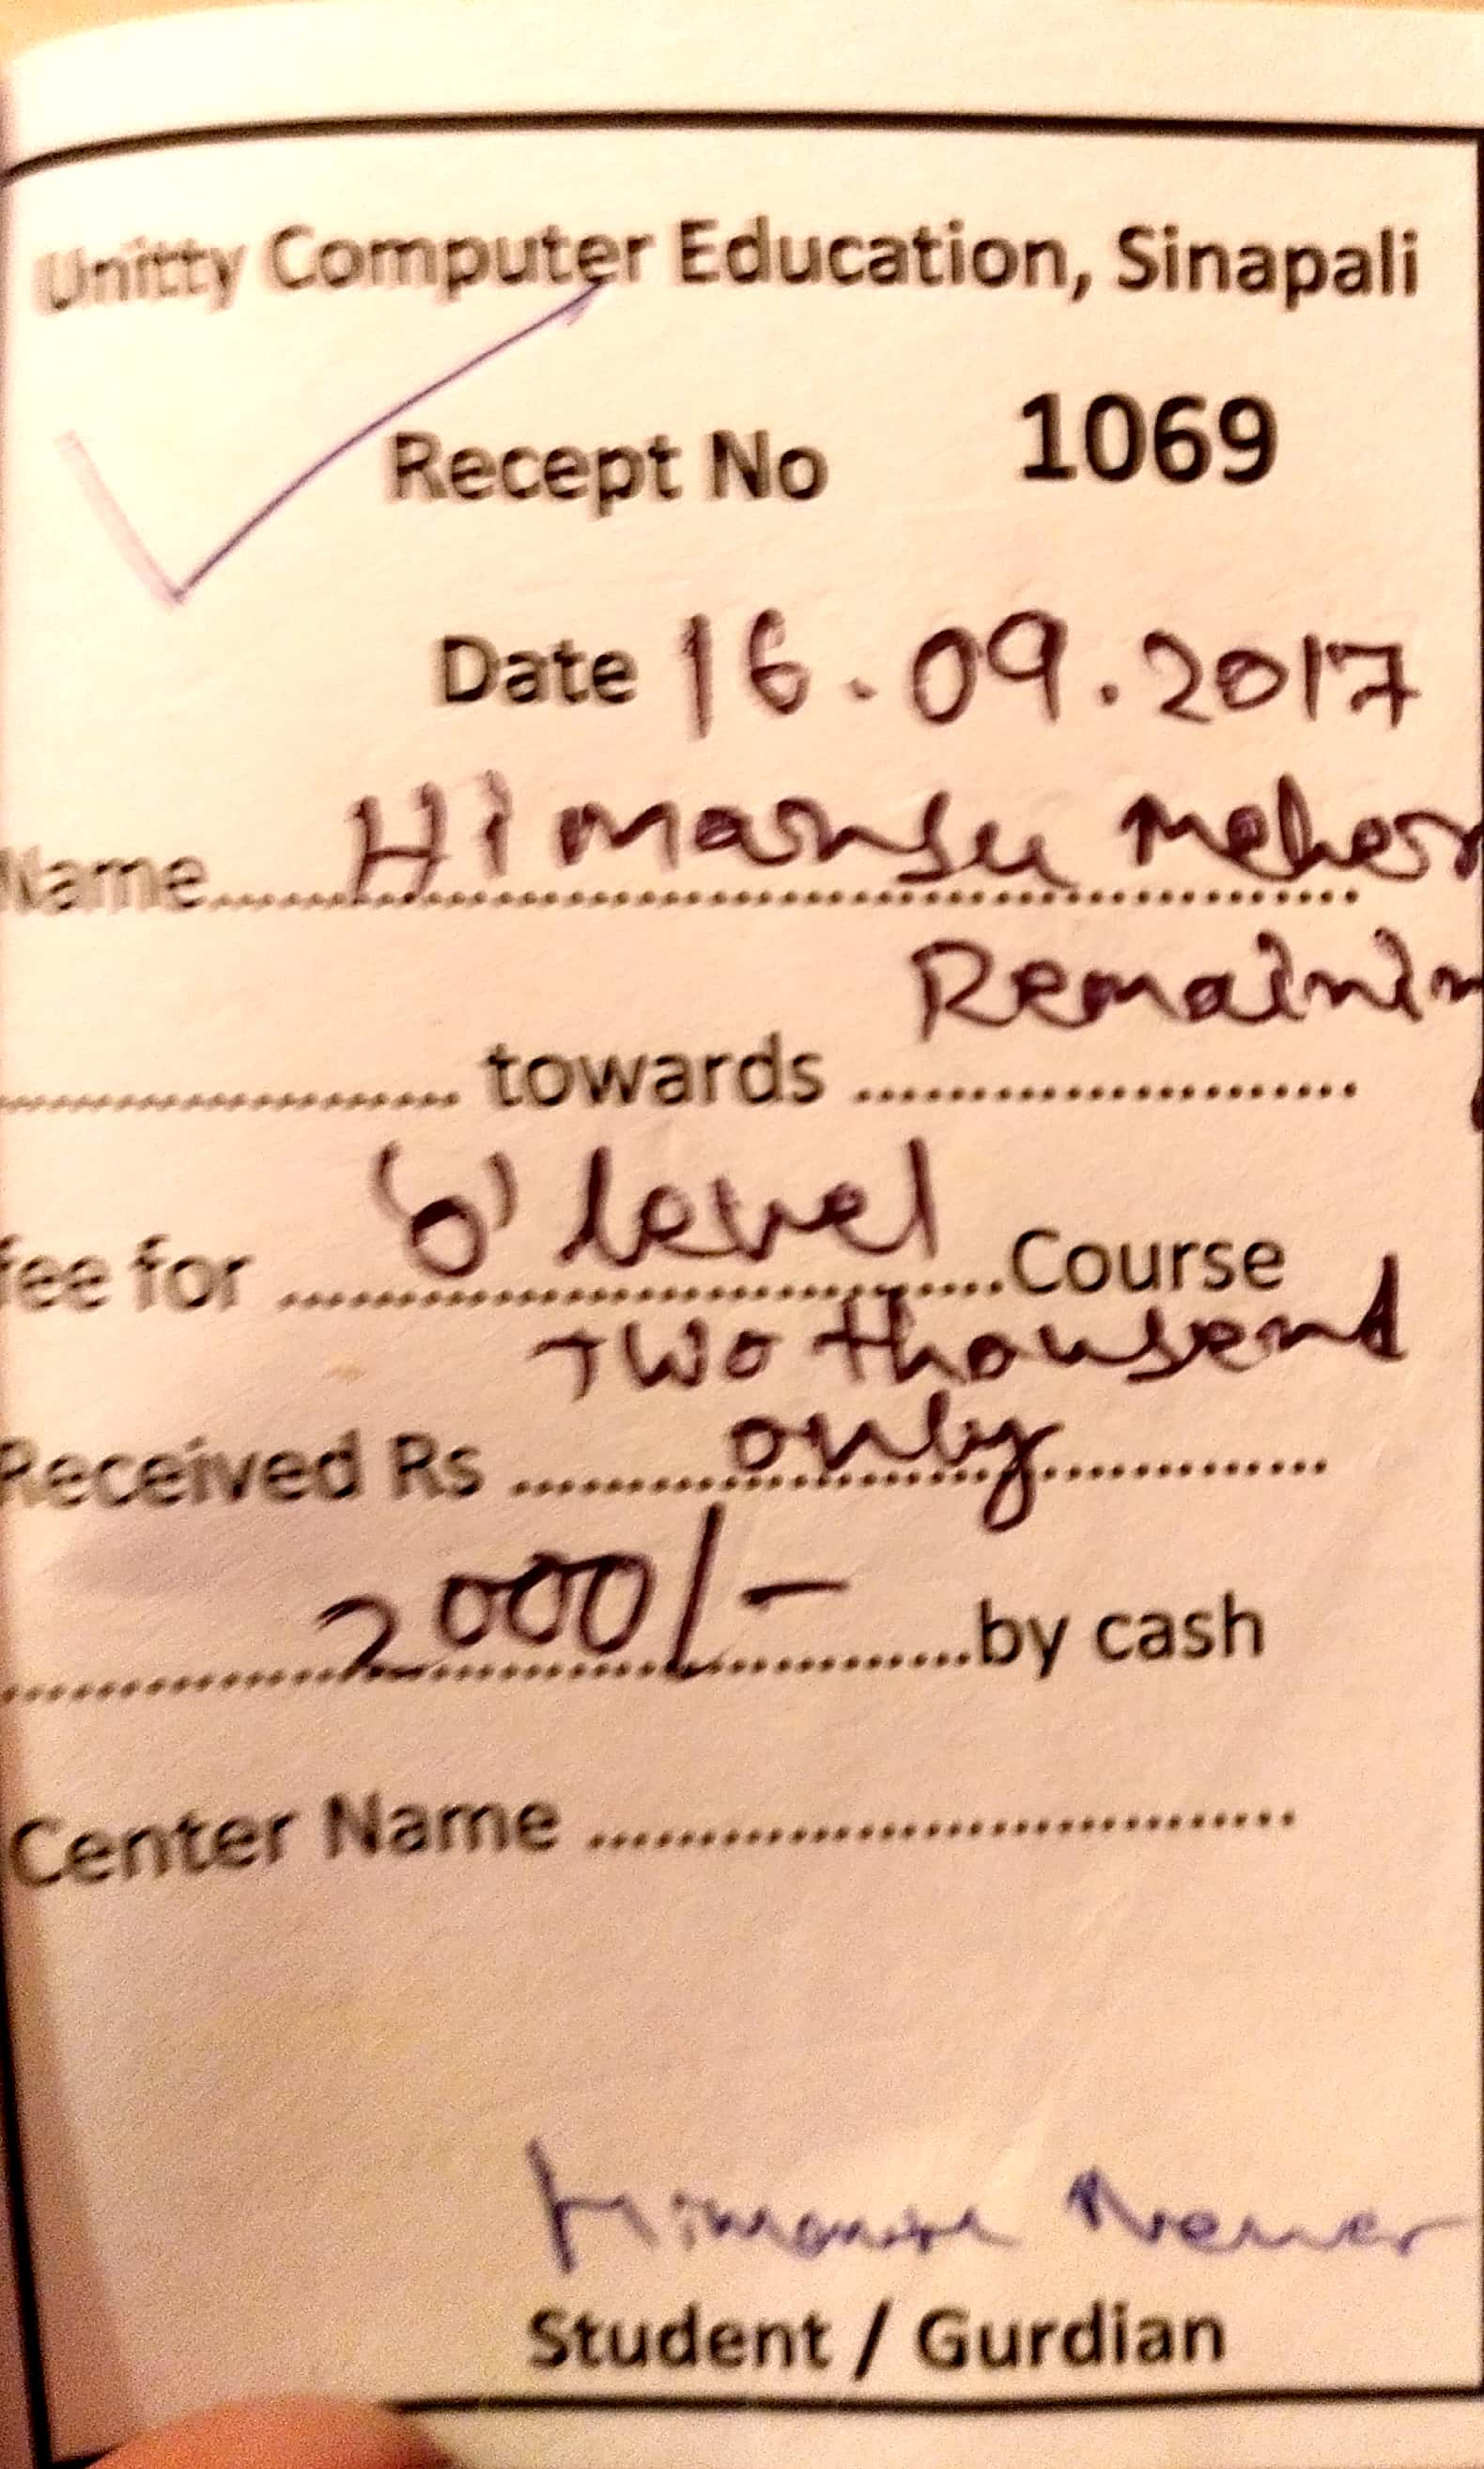 Unitty Computer Education, Sinapali
Recept No 1069
Date 16.09.2017
Name.......Himansu Meher
Remainin
................ towards ................
fee for ....'O' level....Course
Two thousend
Received Rs ........only........
........2000/-........by cash
Center Name ................................
Himansu Meher
Student / Gurdian